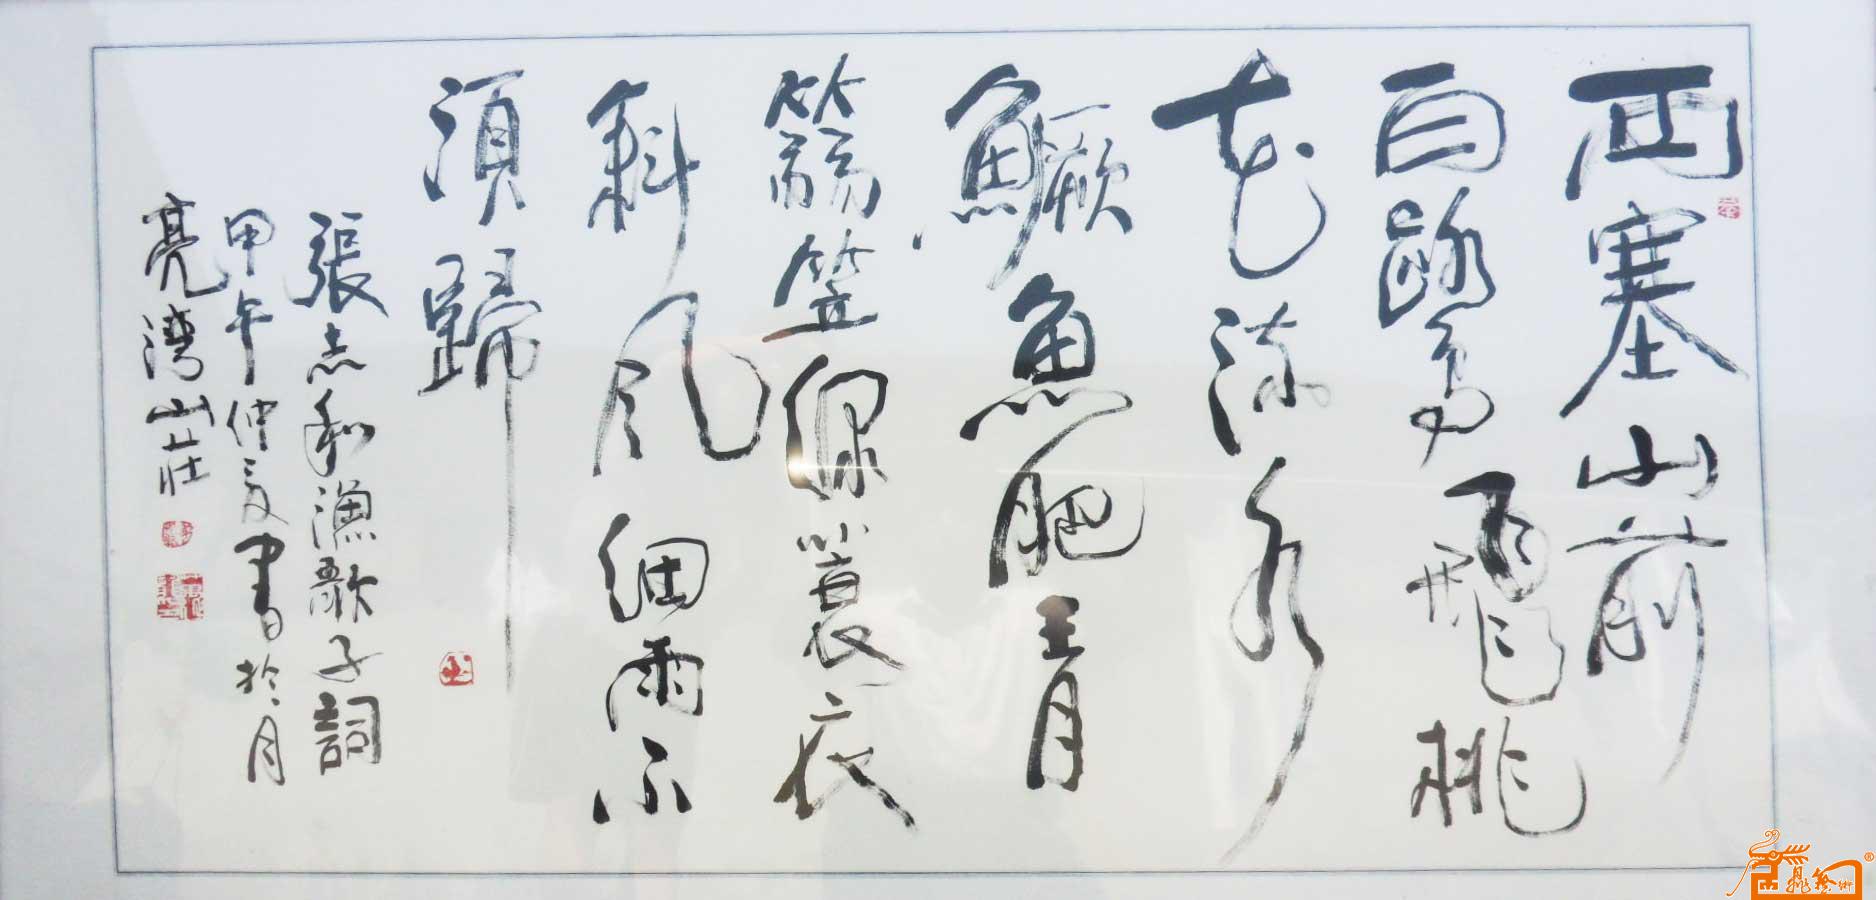 西塞山前
白鹭鸶飞桃
花流水
鳜鱼肥青
篛笠绿蓑衣
斜风细雨不
須歸
張志和漁歌子詞
甲午仲夏書於月
亮灣山莊